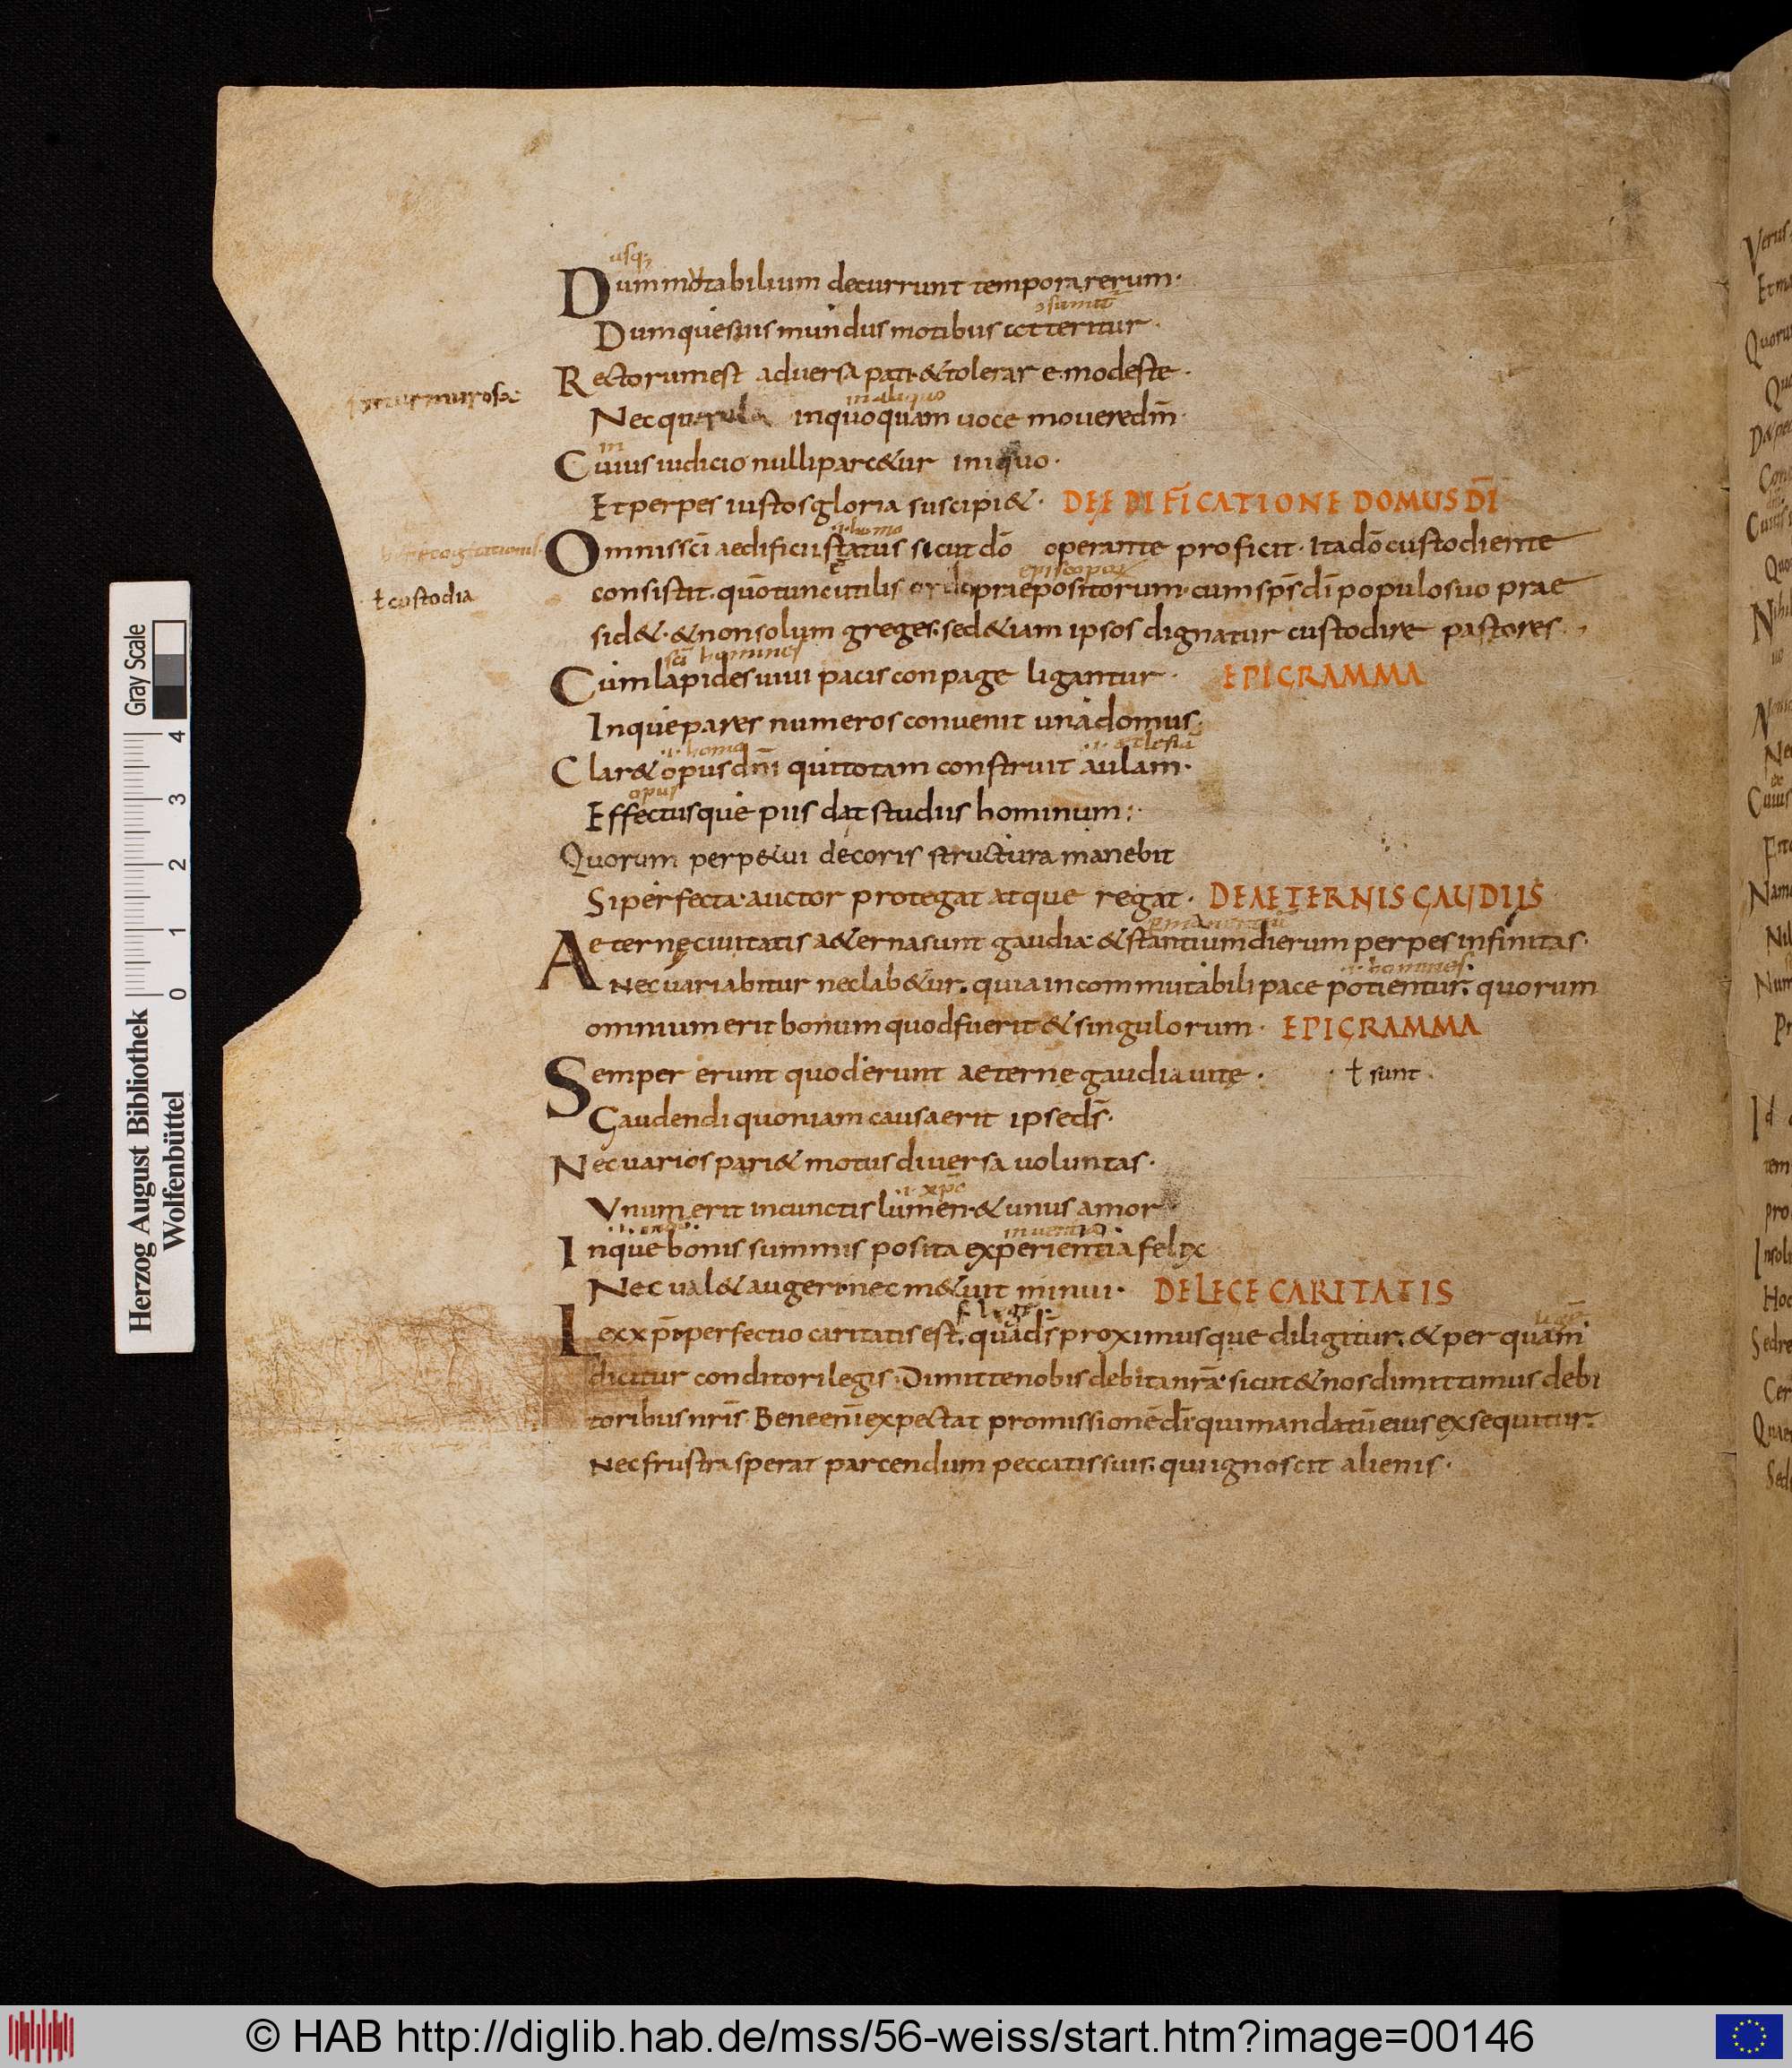 usq;
Dum mutabilium decurrunt tempora rerum·
Dumque suis mundus motibus atteritur·
Rectorum est adversa pati· & tolerare modeste·
murmurosa
in aliquo
Nec querula in quoquam voce movere dm̄·
in
Cuius iudicio nulli parc&ur iniquo·
Et perpes iustos gloria suscipi&· DE ĘDIFICATIONE DOMUS DĪ
·i· homo
Omnis sc̄i aedificii status sicut dō operante proficit· Ita dō custodiente
ł custodia
episcoporum
consistit· quō tunc utilis ordo praepositorum· cum sps̄ dī populo suo prae
sid&· & non solum greges· sed &iam ipsos dignatur custodire pastores·,
sc̄i homines
Cum lapides vivi pacis conpage ligantur· EPIGRAMMA
Inque pares numeros convenit una domus·
·i· homo ·i· ecclesiā
Clar& opus dnī qui totam construit aulam·
opus
Effectusque piis dat studiis hominum:·
Quorum perp&ui decoris structura manebit
Si perfecta auctor protegat atque regat· DE AETERNIS GAUDIIS
permanentiū
Aeternę civitatis a&erna sunt gaudia· & stantium dierum perpes infinitas·
·i· homines·
Nec variabitur nec lab&ur· quia incommutabili pace potientur· quorum
omnium erit bonum quod fuerit & singulorum· EPIGRAMMA
Semper erunt quod erunt aeterne gaudia vitę· · ł sunt·
Gaudendi quoniam causa erit ipse ds̄·
Nec varios pari& motus diversa voluntas·
·i· xp̄c
Unum erit in cunctis lumen· & unus amor
inventio
Inque bonis summis posita experientia felix
Nec val& augeri· nec m&uit minui· DE LEGE CARITATIS
·s· lege·
Lex xp̄i· perfectio caritatis est· qua ds̄ proximusque diligitur· & per quam
dicitur conditori legis· Dimitte nobis debita nr̄a· sicut & nos dimittimus debi
toribus nrīs· Bene enī expectat promissionē dī qui mandatū eius exsequitur·
Nec frustra sperat parcendum peccatis suis· qui ignoscit alienis·
Herzog August Bibliothek
Wolfenbüttel
0 1 2 3 4
Gray Scale
© HAB http://diglib.hab.de/mss/56-weiss/start.htm?image=00146